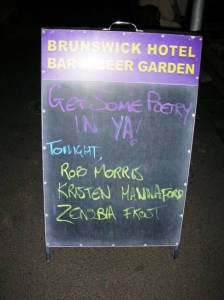 BRUNSWICK HOTEL
BAR & BEER GARDEN
GET SOME POETRY
IN YA!
TONIGHT,
ROB MORRIS
KRISTEN HANNAFORD
ZENOBIA FROST